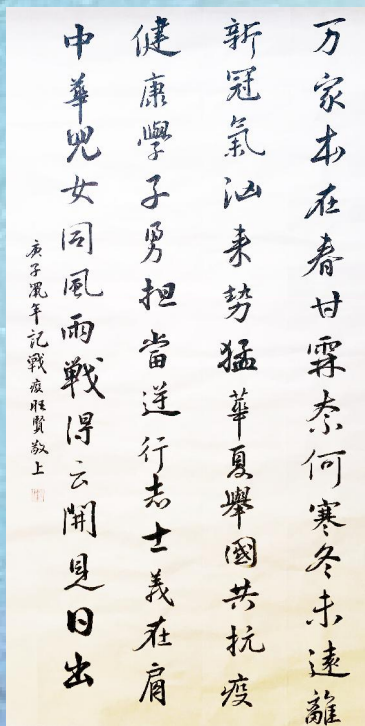 万家本在春甘霖奈何寒冬未遠離
新冠氣汹来勢猛華夏舉國共抗疫
健康學子勇担當逆行志士義在肩
中華兒女同風雨戰得云開見日出
庚子鼠年記戰疫旺賢敬上